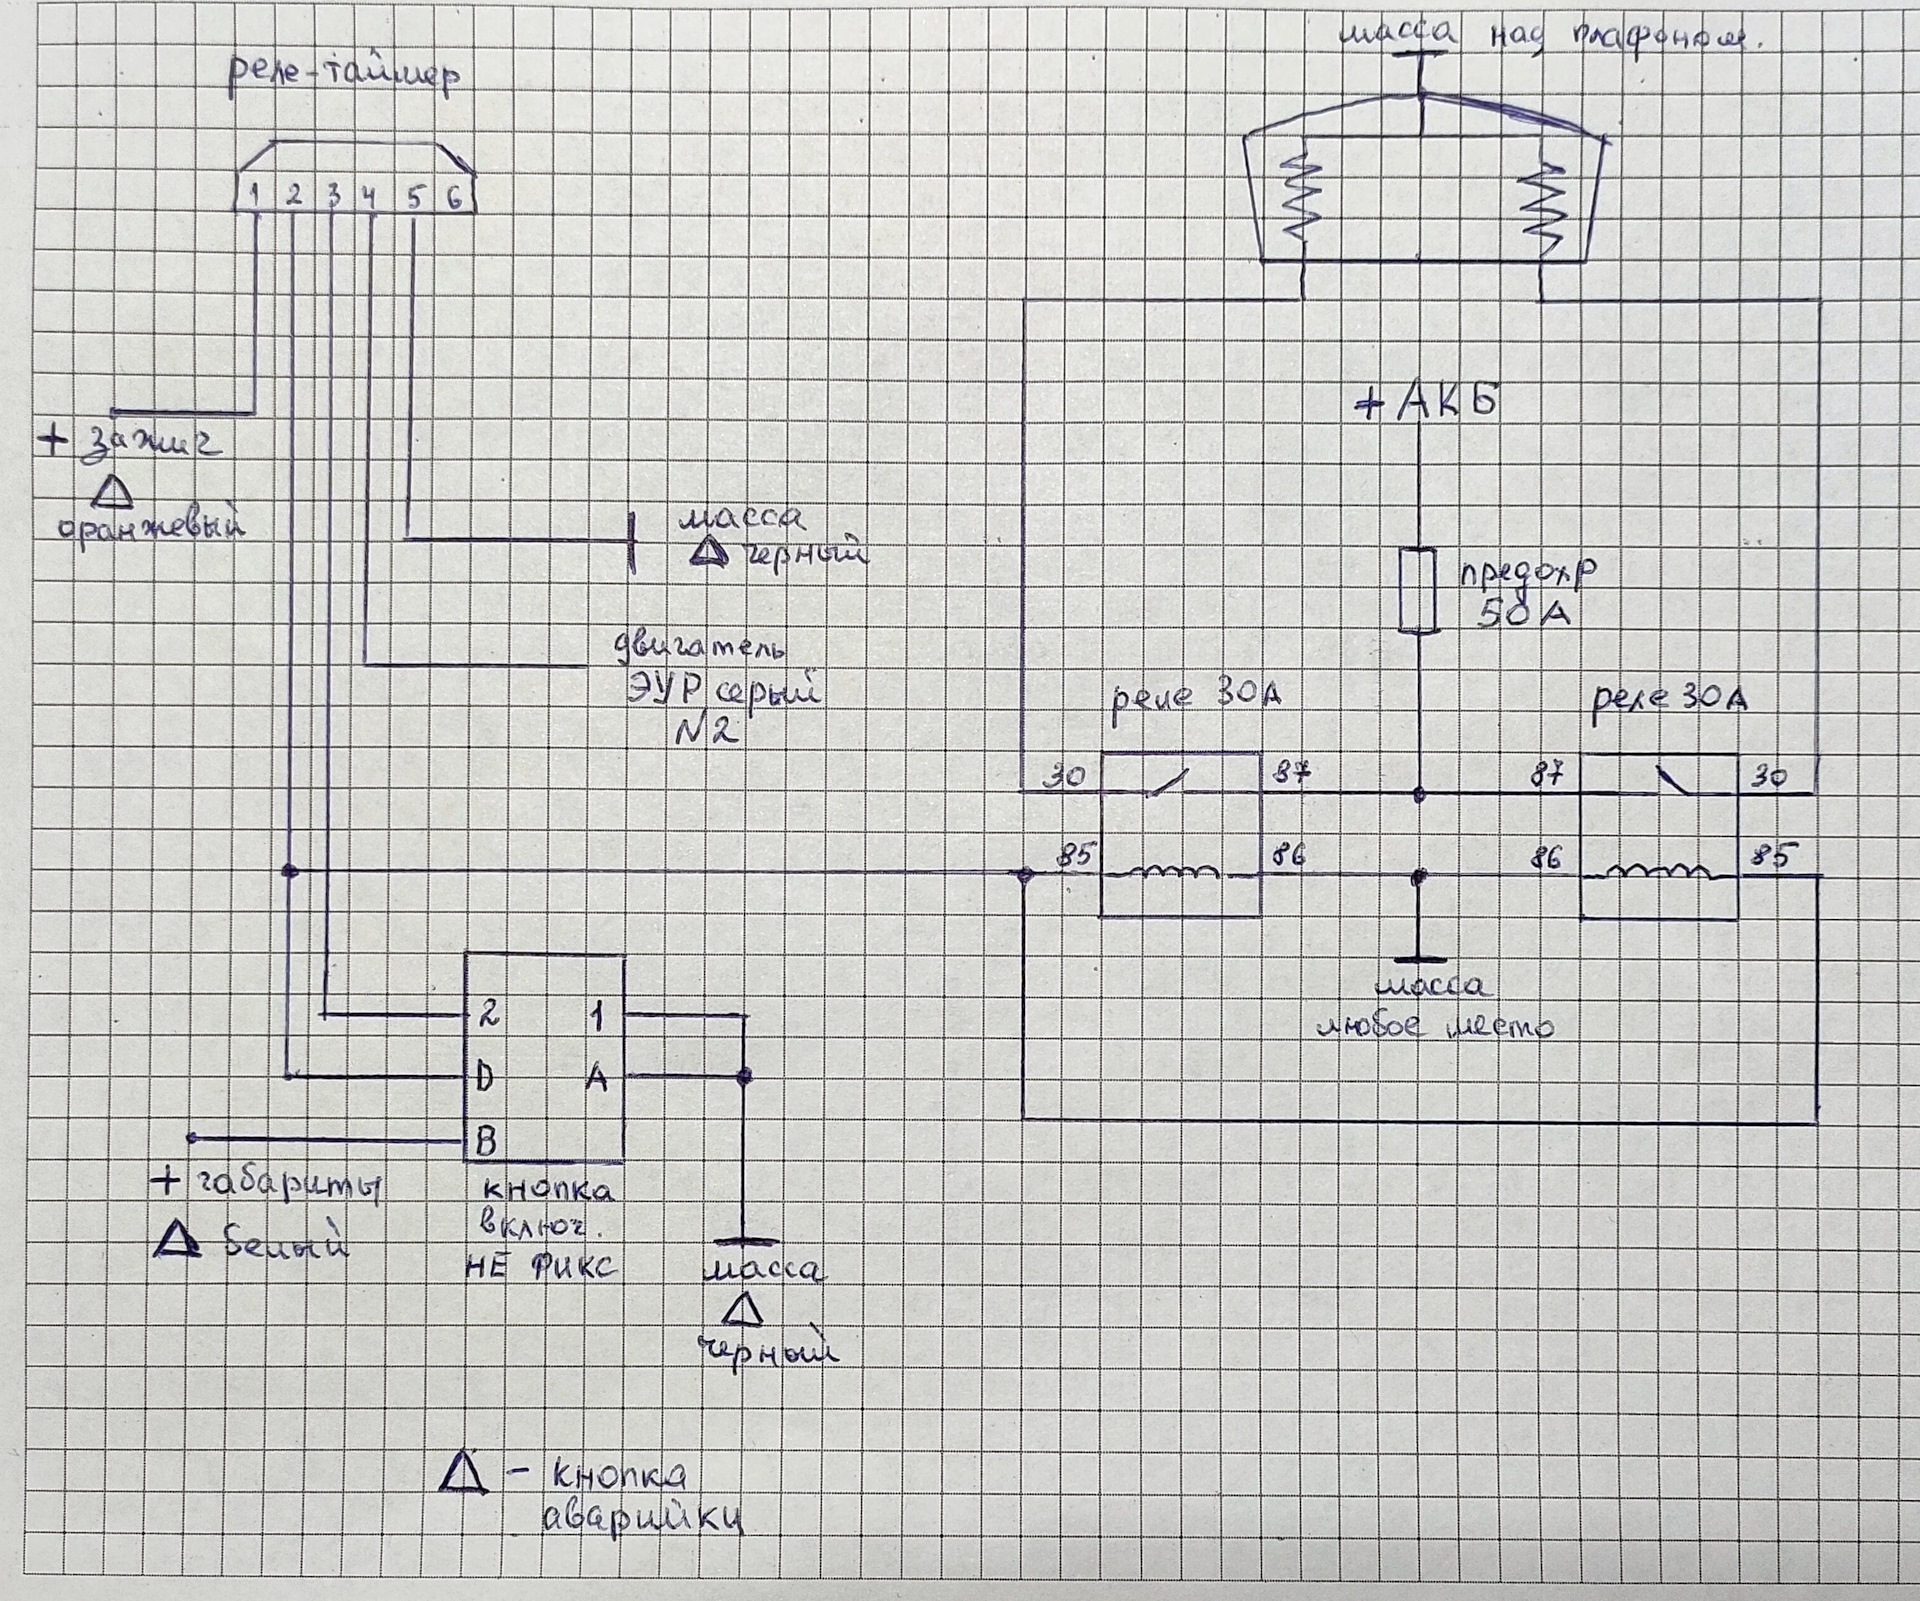 масса над плафоном.
реле-таймер
1 2 3 4 5 6
+ АКБ
+ зажиг
оранжевый
масса
черный
предохр
50А
двигатель
ЭУР серый
N2
реле 30А
реле 30А
30 87 87 30
85 86 86 85
масса
любое место
2 1
D A
B
+ габариты
белый
кнопка
включ.
НЕ ФИКС
масса
черный
- кнопка
аварийки